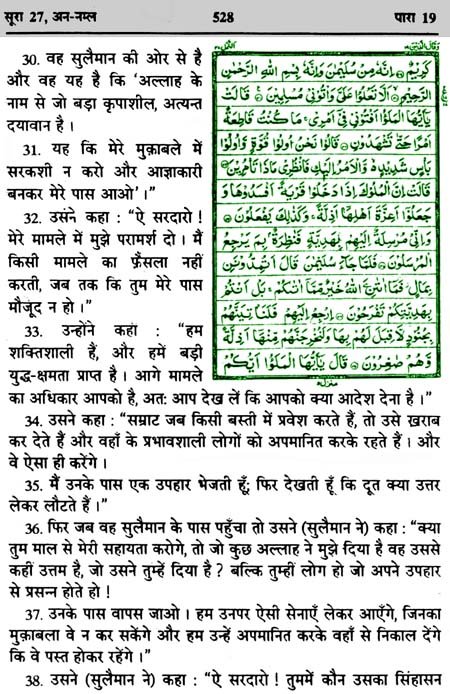 सूरा 27, अन-नम्ल 528 पारा 19
30. वह सुलैमान की ओर से है
और वह यह है कि ‘अल्लाह के
नाम से जो बड़ा कृपाशील, अत्यन्त
दयावान है ।
31. यह कि मेरे मुक़ाबले में
सरकशी न करो और आज्ञाकारी
बनकर मेरे पास आओ’ ।”
32. उसने कहा : “ऐ सरदारो !
मेरे मामले में मुझे परामर्श दो । मैं
किसी मामले का फ़ैसला नहीं
करती, जब तक कि तुम मेरे पास
मौजूद न हो ।”
33. उन्होंने कहा : “हम
शक्तिशाली हैं, और हमें बड़ी
युद्ध-क्षमता प्राप्त है । आगे मामले
كَرِيْمٌ ۝ اِنَّهٗ مِنْ سُلَيْمٰنَ وَاِنَّهٗ بِسْمِ اللّٰهِ الرَّحْمٰنِ
الرَّحِيْمِ ۝ اَلَّا تَعْلُوْا عَلَيَّ وَاْتُوْنِيْ مُسْلِمِيْنَ ۝ قَالَتْ
يٰٓاَيُّهَا الْمَلَؤُا اَفْتُوْنِيْ فِيْٓ اَمْرِيْ مَا كُنْتُ قَاطِعَةً
اَمْرًا حَتّٰى تَشْهَدُوْنِ ۝ قَالُوْا نَحْنُ اُولُوْا قُوَّةٍ وَّاُولُوْا
بَاْسٍ شَدِيْدٍ وَّالْاَمْرُ اِلَيْكِ فَانْظُرِيْ مَاذَا تَاْمُرِيْنَ ۝
قَالَتْ اِنَّ الْمُلُوْكَ اِذَا دَخَلُوْا قَرْيَةً اَفْسَدُوْهَا وَ
جَعَلُوْٓا اَعِزَّةَ اَهْلِهَآ اَذِلَّةً وَكَذٰلِكَ يَفْعَلُوْنَ ۝
وَاِنِّيْ مُرْسِلَةٌ اِلَيْهِمْ بِهَدِيَّةٍ فَنٰظِرَةٌۢ بِمَ يَرْجِعُ
الْمُرْسَلُوْنَ ۝ فَلَمَّا جَآءَ سُلَيْمٰنَ قَالَ اَتُمِدُّوْنَنِ
بِمَالٍ فَمَآ اٰتٰىنِ اللّٰهُ خَيْرٌ مِّمَّآ اٰتٰىكُمْ بَلْ اَنْتُمْ
بِهَدِيَّتِكُمْ تَفْرَحُوْنَ ۝ اِرْجِعْ اِلَيْهِمْ فَلَنَاْتِيَنَّهُمْ
بِجُنُوْدٍ لَّا قِبَلَ لَهُمْ بِهَا وَلَنُخْرِجَنَّهُمْ مِّنْهَآ اَذِلَّةً
وَّهُمْ صٰغِرُوْنَ ۝ قَالَ يٰٓاَيُّهَا الْمَلَؤُا اَيُّكُمْ
का अधिकार आपको है, अतः आप देख लें कि आपको क्या आदेश देना है ।”
34. उसने कहा : “सम्राट जब किसी बस्ती में प्रवेश करते हैं, तो उसे ख़राब
कर देते हैं और वहाँ के प्रभावशाली लोगों को अपमानित करके रहते हैं । और
वे ऐसा ही करेंगे ।
35. मैं उनके पास एक उपहार भेजती हूँ; फिर देखती हूँ कि दूत क्या उत्तर
लेकर लौटते हैं ।”
36. फिर जब वह सुलैमान के पास पहुँचा तो उसने (सुलैमान ने) कहा : “क्या
तुम माल से मेरी सहायता करोगे, तो जो कुछ अल्लाह ने मुझे दिया है वह उससे
कहीं उत्तम है, जो उसने तुम्हें दिया है ? बल्कि तुम्हीं लोग हो जो अपने उपहार
से प्रसन्न होते हो !
37. उनके पास वापस जाओ । हम उनपर ऐसी सेनाएँ लेकर आएँगे, जिनका
मुक़ाबला वे न कर सकेंगे और हम उन्हें अपमानित करके वहाँ से निकाल देंगे
कि वे पस्त होकर रहेंगे ।”
38. उसने (सुलैमान ने) कहा : “ऐ सरदारो ! तुममें कौन उसका सिंहासन